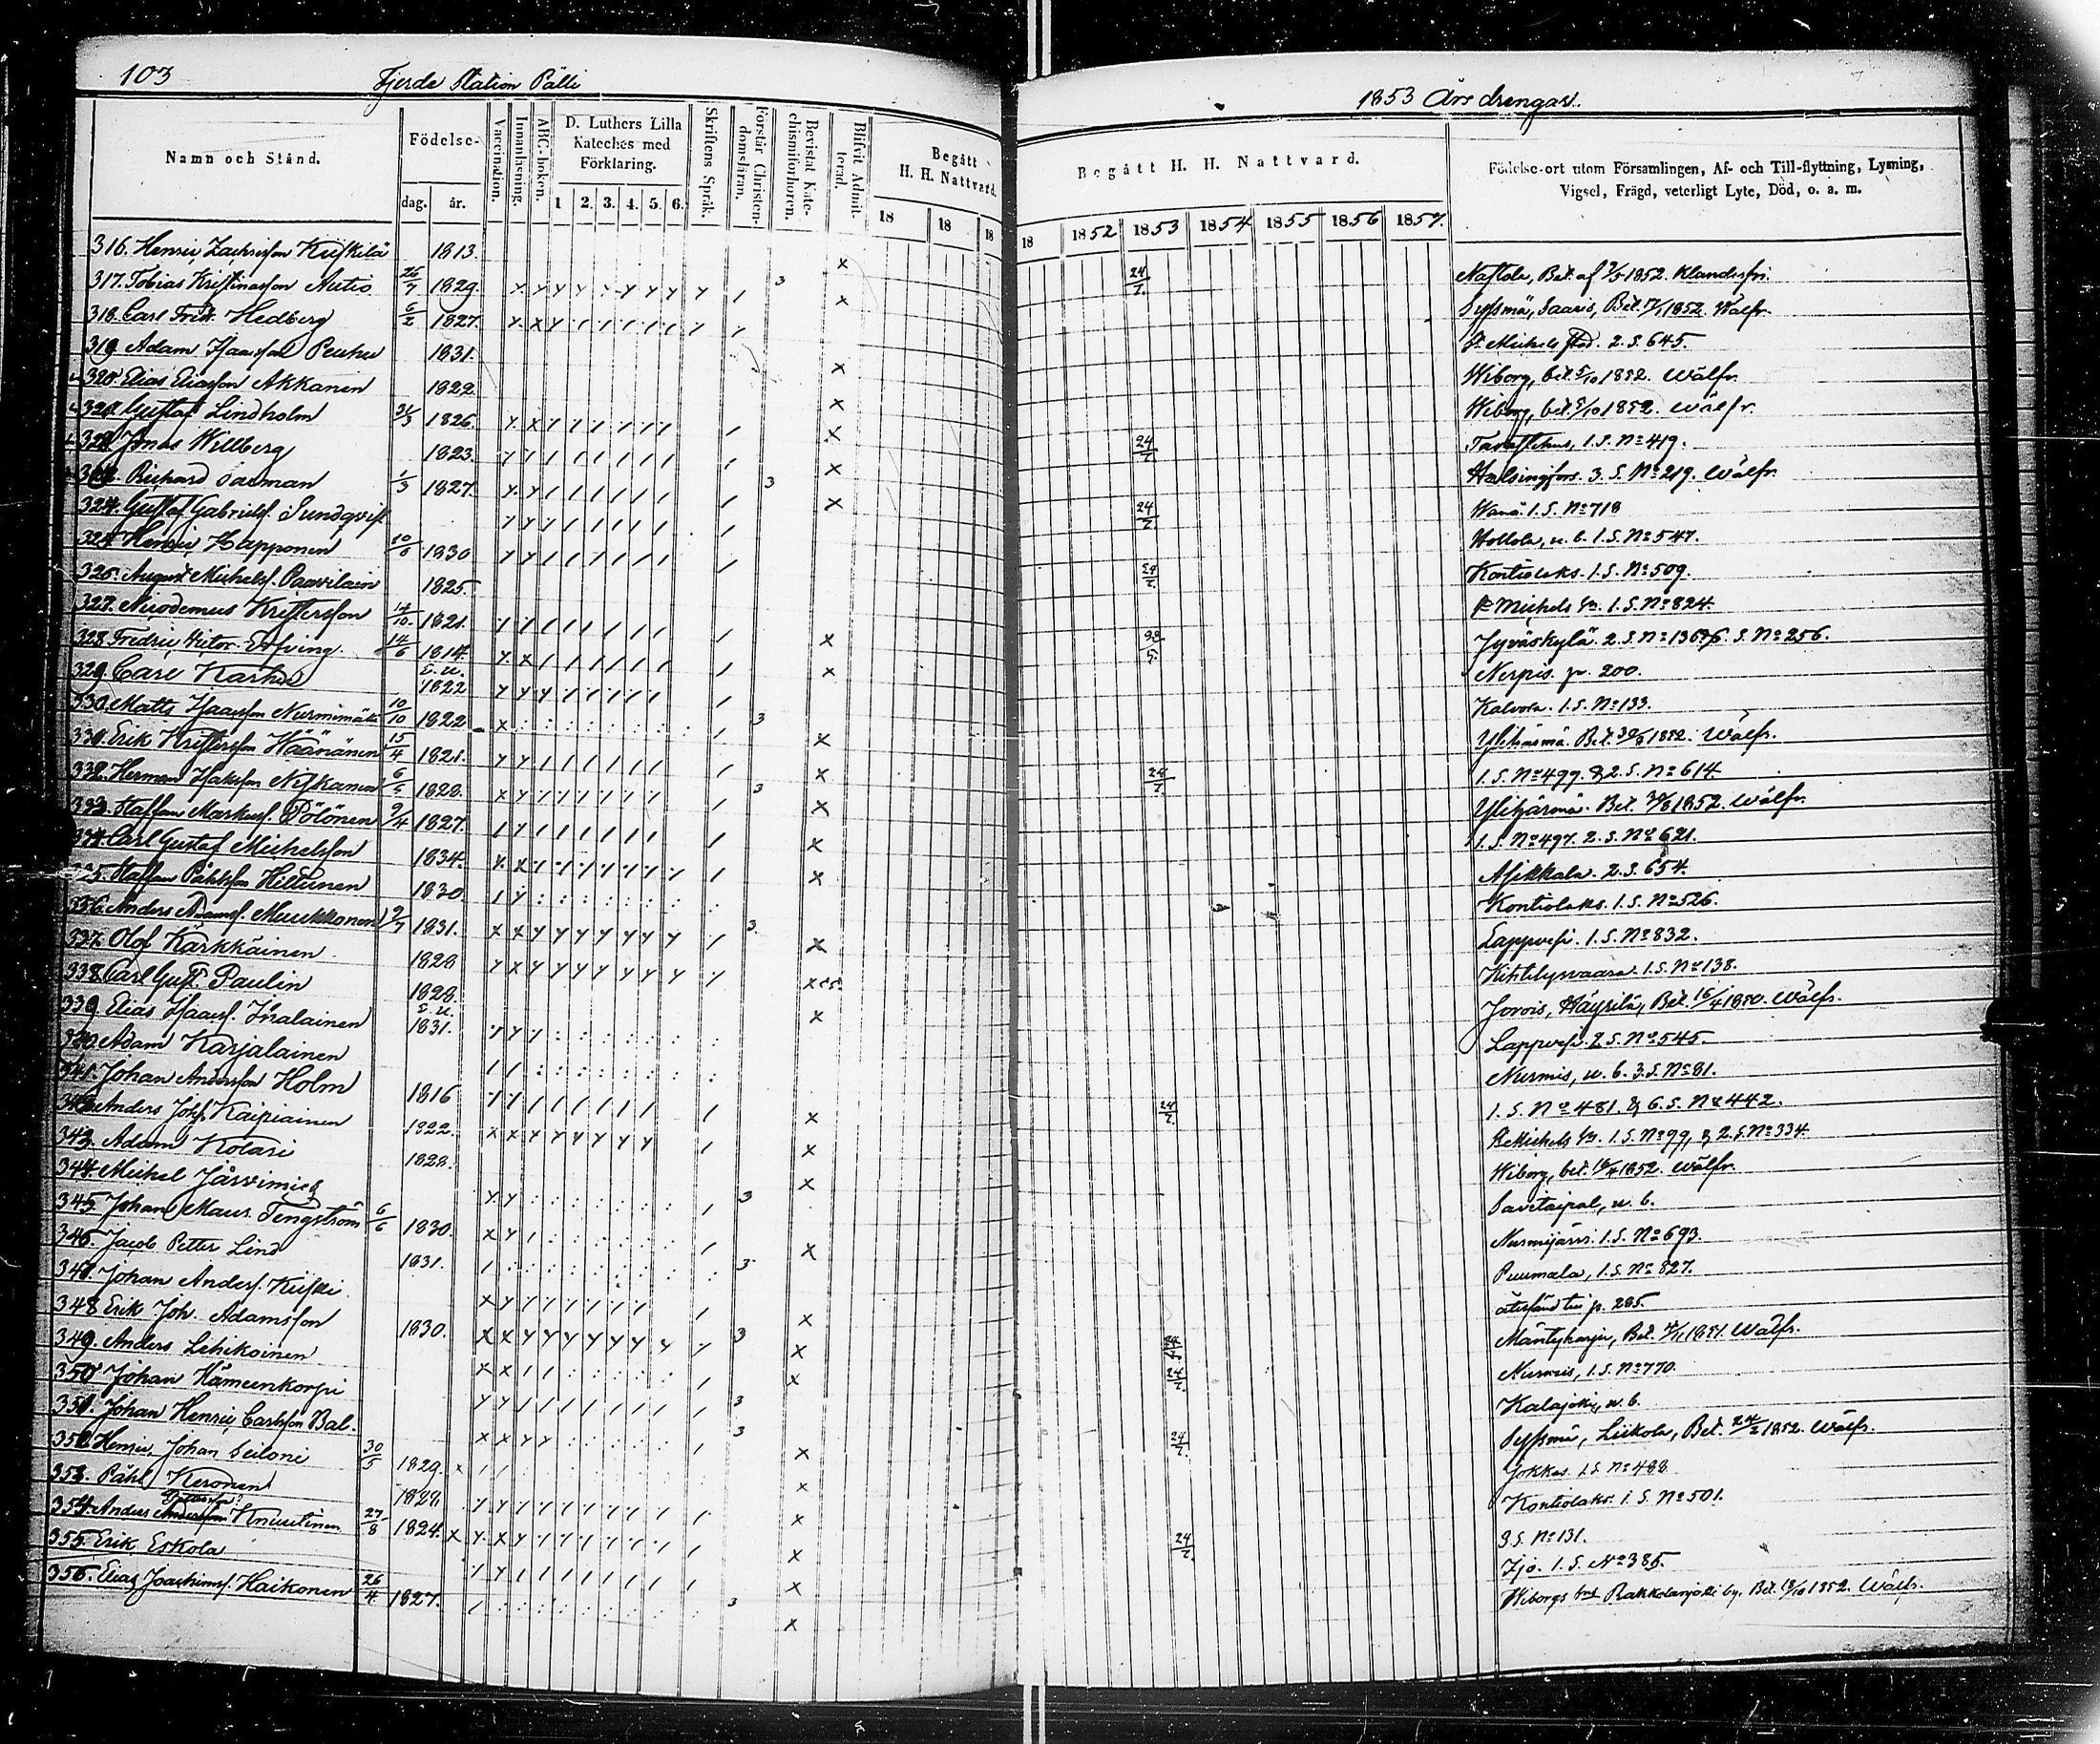 103
Fjerde Station Pälli
Namn och Stånd.
Födelse-
dag.
år.
Vaccination.
Innanläsning.
ABC-boken.
D. Luthers Lilla
Kateches med
Förklaring.
1 2. 3. 4. 5. 6.
Skriftens Språk.
Förstår Christen-
domsläran.
Bevistat Kate-
chismiförhören.
Blifvit Admit-
terad.
Begått
H. H. Nattvard.
18 18 18
316. Henric Zachrisson Kuskilä 1813.
317. Tobias Kristinasson Autio 26/7 1829.
318. Carl Fridr. Hedberg 6/2 1827.
319. Adam Isaacsson Peuhu 1831.
320. Elias Eliasson Akkanen 1822.
321. Gustaf Lindholm 31/3 1826.
322. Jonas Willberg 1823.
Richard Saxman 1/3 1827.
324. Gustaf Gabrielsf. Sundqvist
Henric Happonen 10/6 1830
326. August Michelsf. Paavilain 1825.
327. Nicodemus Kristersson 14/10. 1821.
328. Fredric Victor Elfving 14/6 1814.
329. Carl Karhu 1822
330. Matts Isaacsson Nurmimäki 10/10 1822
331. Erik Kristersson Wäänänen 15/4 1821.
332. Herman Isaksson Niskanen 6/5 1828.
333. Staffan Markusf. Pölönen 9/4 1827.
334. Carl Gustaf Michelsson 1834.
335. Staffan Påhlsson Hiltunen 1830.
336. Anders Adamsf. Muukkonen 9/7 1831.
337. Olof Kärkkäinen 1828
338. Carl Gust. Paulin 1828.
339. Elias Isaacsf. Ihalainen 1831.
340. Adam Karjalainen
341. Johan Andersson Holm 1816
342. Anders Johsf. Kaipiainen 1822.
343. Adam Kolari 1828.
344. Michel Järvimies
345. Johan Maur. Tengström 6/6 1830.
346. Jacob Petter Lind 1831.
347. Johan Andersf. Kuski
348. Erik Joh. Adamsson 1830.
349. Anders Lehikoinen
350. Johan Hämeenkorpi
351. Johan Henric Carlsson Bal.
352. Henric Johan Seiloni 30/5 1829.
353. Påhl Keronen 1828.
354. Anders Andersson Knuutinen 27/8 1824.
355. Erik Eskola
356. Elias Joachimsf. Haikonen 26/4 1827.
1853 Års drengar.
Begått H. H. Nattvard.
Födelse-ort utom Församlingen, Af- och Till-flyttning, Lysning,
Vigsel, Frägd, veterligt Lyte, Död, o. a. m.
18 1852 1853 1854 1855 1856 1857.
Nastola, Bet. af 9/5 1852. Klanderfri.
Syssmä, Saaris, Bet. 1852. Wälfr.
St Michels stad. 2. S. 645.
Wiborg, bet. 5/10 1852. Wälfr.
Wiborg, bet. 5/10 1852. Wälfr.
Tavastehus, 1. S. No 419.
Helsingfors. 3. S. No 219. Wälfr.
Wånå. 1. S. No 718
Hollola, u. b. 1. S. No 547.
Kontiolaks. 1. S. No 509.
St Michels sn. 1. S. No 824.
Jyväskylä. 2. S. No 136 & 6. S. No 256.
Nerpis. p. 200.
Kalvola. 1. S. No 133.
Ylihärmä. Bet. 30/8 1852. Wälfr.
1. S. No 499. & 2. S. No 614
Ylihärmä. Bet. 30/8 1852. Wälfr.
1. S. No 497. 2. S. No 621.
Asikkala. 2. S. 654.
Kontiolaks. 1. S. No 526.
Lappvesi. 1. S. No 832.
Kihtelysvaara. 1. S. No 138.
Jorois, Häyrilä, Bet. 16/4 1850. Wälfr.
Lappvesi. 2. S. No 545.
Nurmis, u. b. 3. S. No 81.
1. S. No 481. & 6. S. No 442.
St Michels sn. 1. S. No 99, & 2. S. No 334
Wiborg, bet. 1852. Wälfr.
Savitaipal, u. b.
Nurmijärvi. 1. S. No 693.
Puumala, 1. S. No 827.
återsänd till p. 285.
Mäntyharju, Bet. 1851. Wälfr.
Nurmis, 1. S. No 770.
Kalajoki, u. b.
Syssmä, Liikola, Bet. 24/2 1852. Wälfr.
Jokkas. 1. S. No 488
Kontiolaks. 1. S. No 501.
3 S. No 131.
Ijo. 1. S. No 385.
Wiborgs Rakkolanjoki by. Bet. 1852. Wälfr.